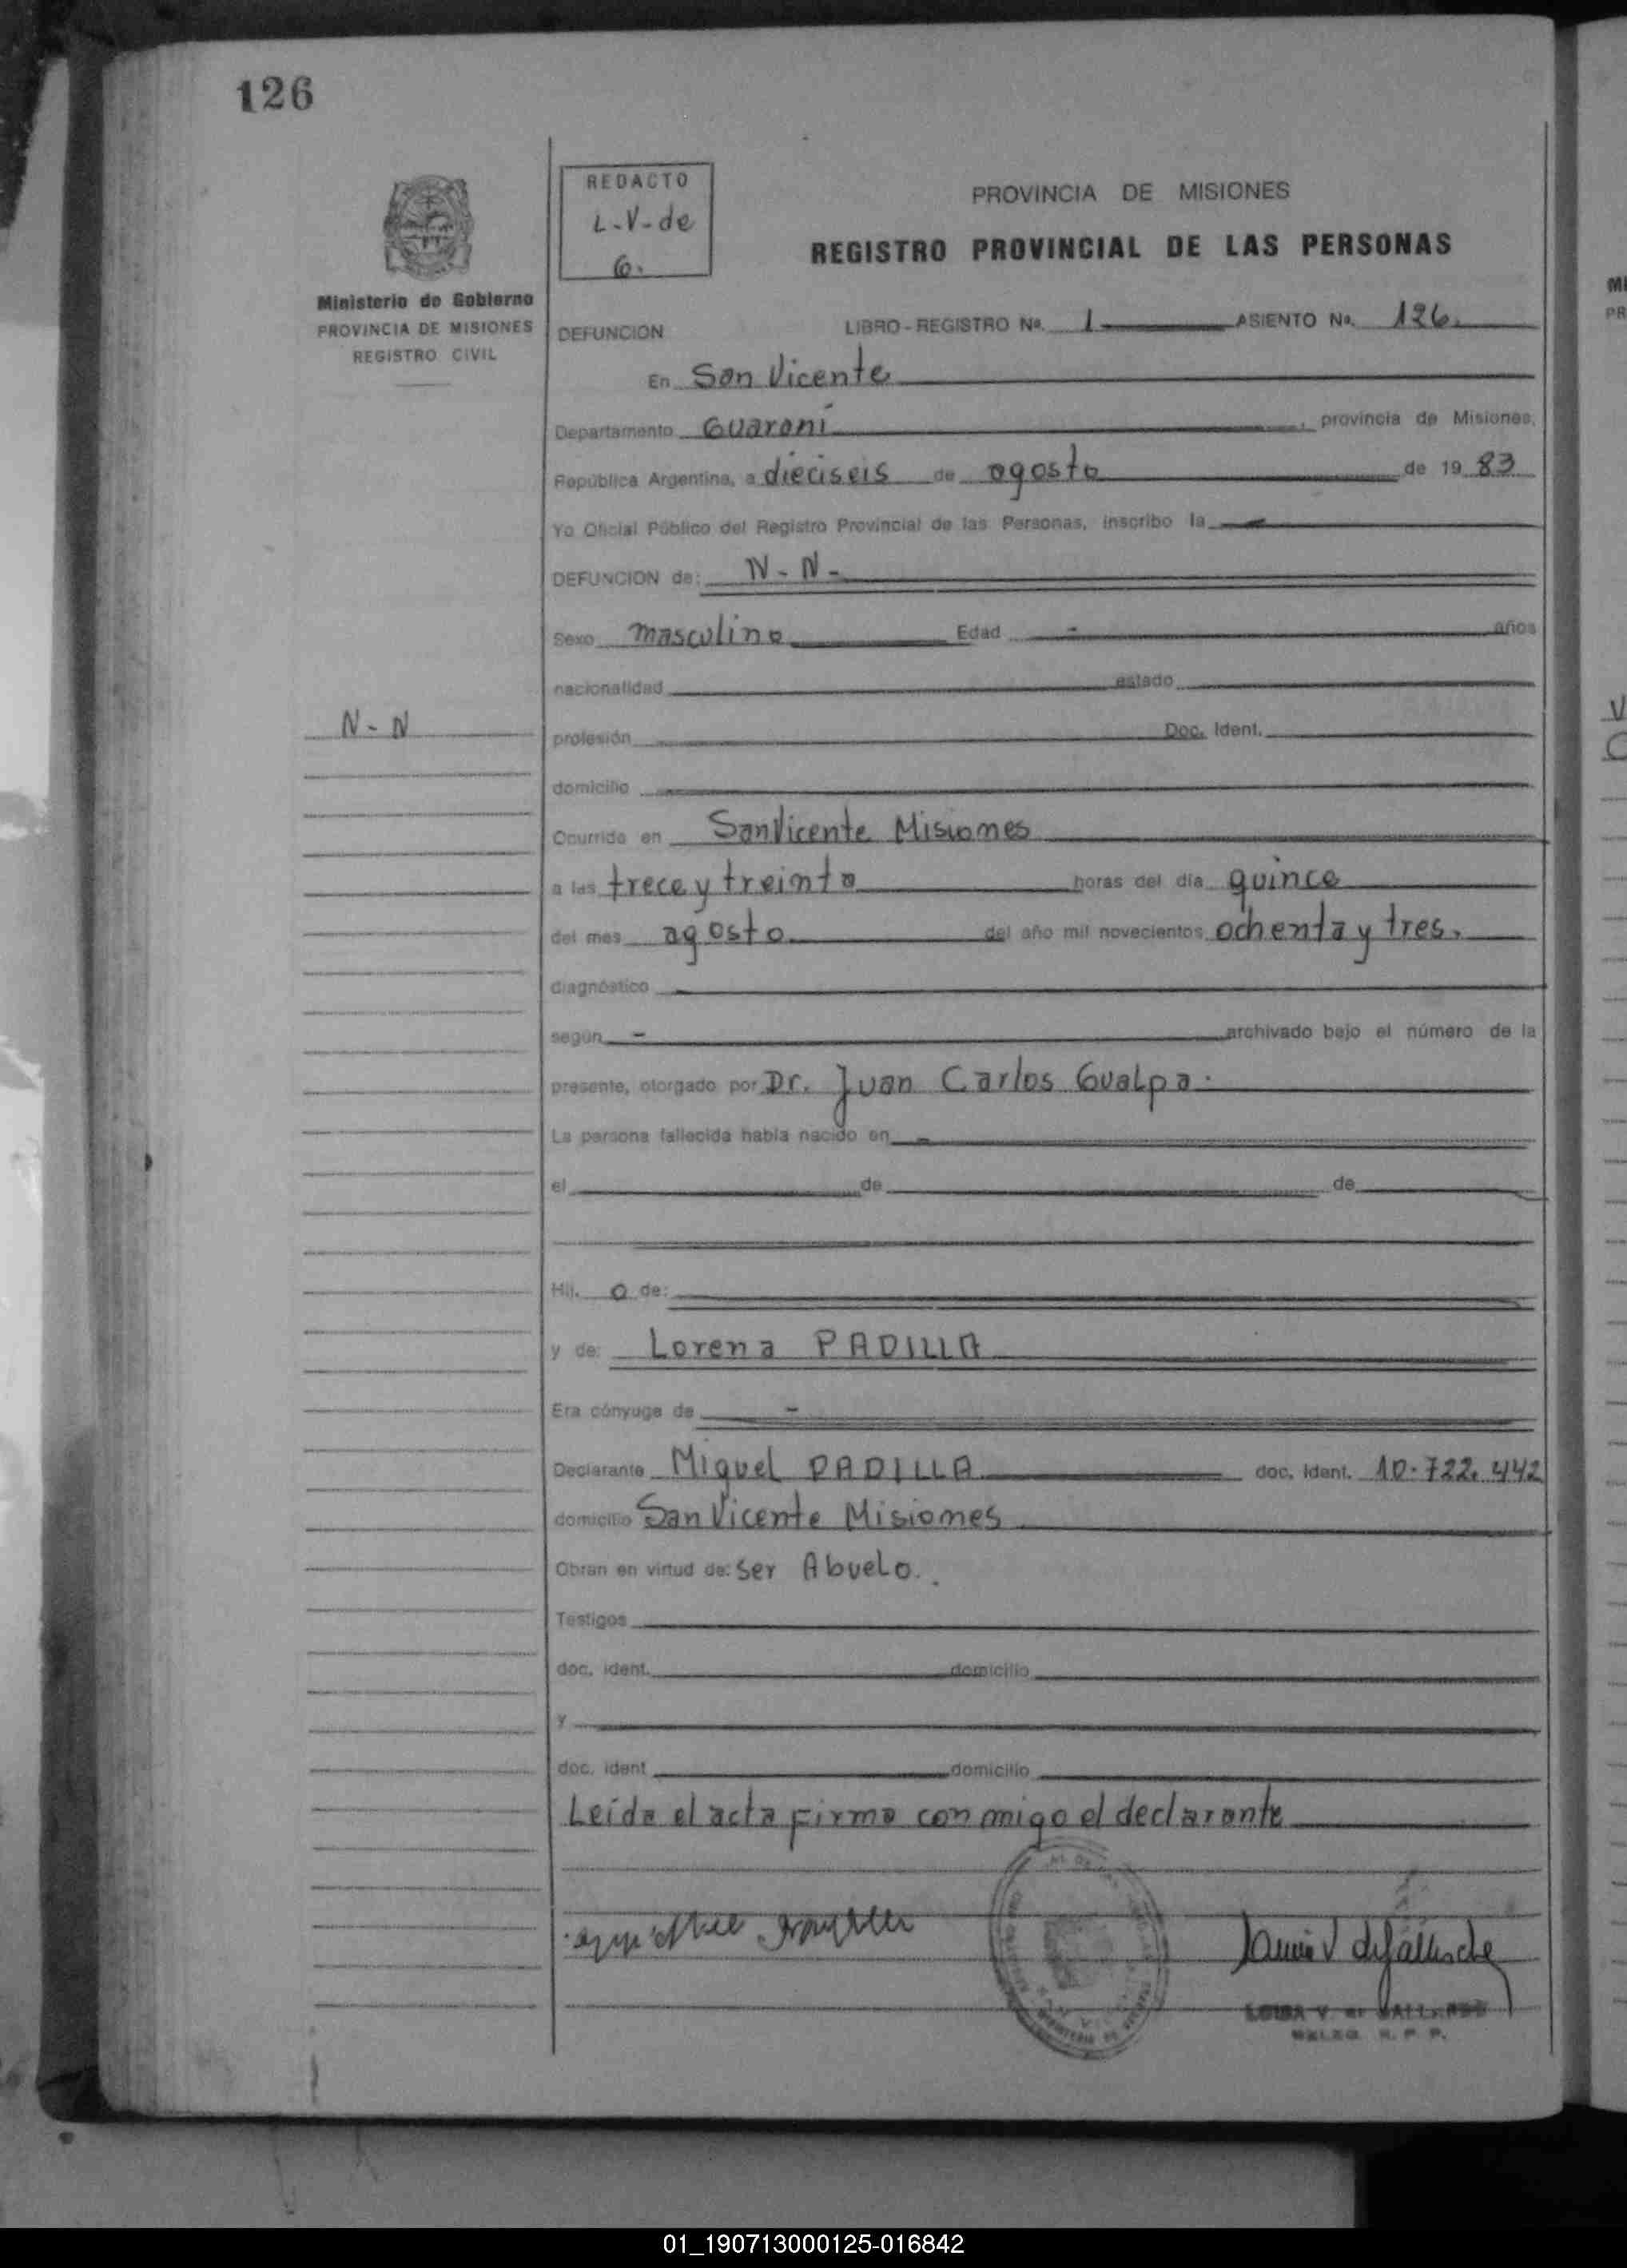 126
REDACTO
L-V-de
G.
PROVINCIA DE MISIONES
REGISTRO PROVINCIAL DE LAS PERSONAS
Ministerio de Gobierno
PROVINCIA DE MISIONES
REGISTRO CIVIL
DEFUNCION LIBRO-REGISTRO No. 1 ASIENTO No. 126.
En San Vicente
Departamento Guaraní, provincia de Misiones,
República Argentina, a dieciseis de agosto de 19 83
Yo Oficial Público del Registro Provincial de las Personas, inscribo la
DEFUNCION de: N-N-
Sexo masculino Edad - años
nacionalidad estado
N-N
profesión Doc. Ident.
domicilio
Ocurrida en San Vicente Misiones
a las trece y treinta horas del día quince
del mes agosto del año mil novecientos ochenta y tres.
diagnóstico -
según - archivado bajo el número de la
presente, otorgado por Dr. Juan Carlos Gualpa.
La persona fallecida había nacido en -
el de de
Hij. o de:
y de: Lorena PADILLA
Era cónyuge de -
Declarante Miguel PADILLA doc. ident. 10.722.442
domicilio San Vicente Misiones
Obran en virtud de: ser Abuelo.
Testigos
doc. ident. domicilio
y
doc. ident domicilio
Leída el acta firma con migo el declarante
MI
PR
01_190713000125-016842